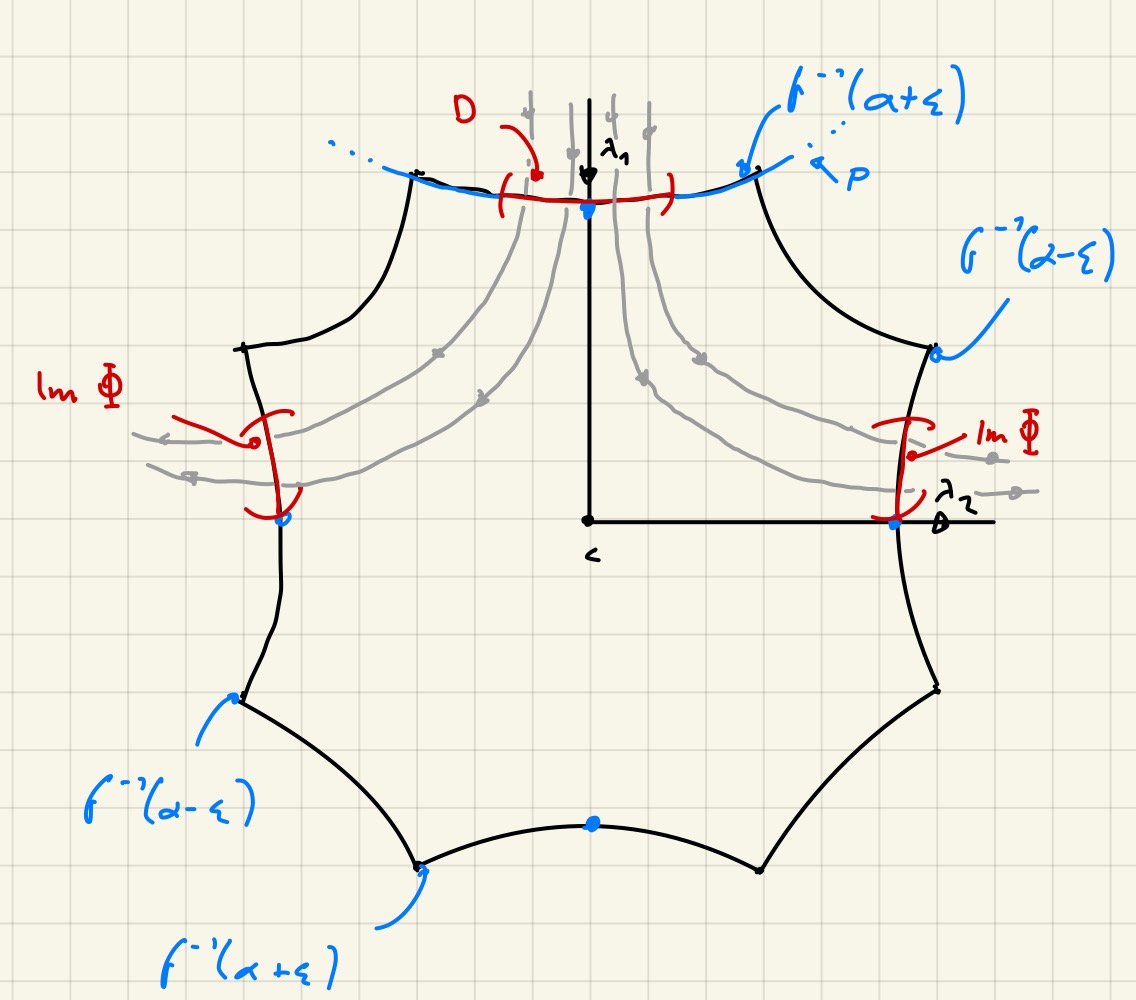 D
λ₁
f⁻¹(α+ε)
P
f⁻¹(α-ε)
Im Φ
Im Φ
λ₂
c
f⁻¹(α-ε)
f⁻¹(α+ε)